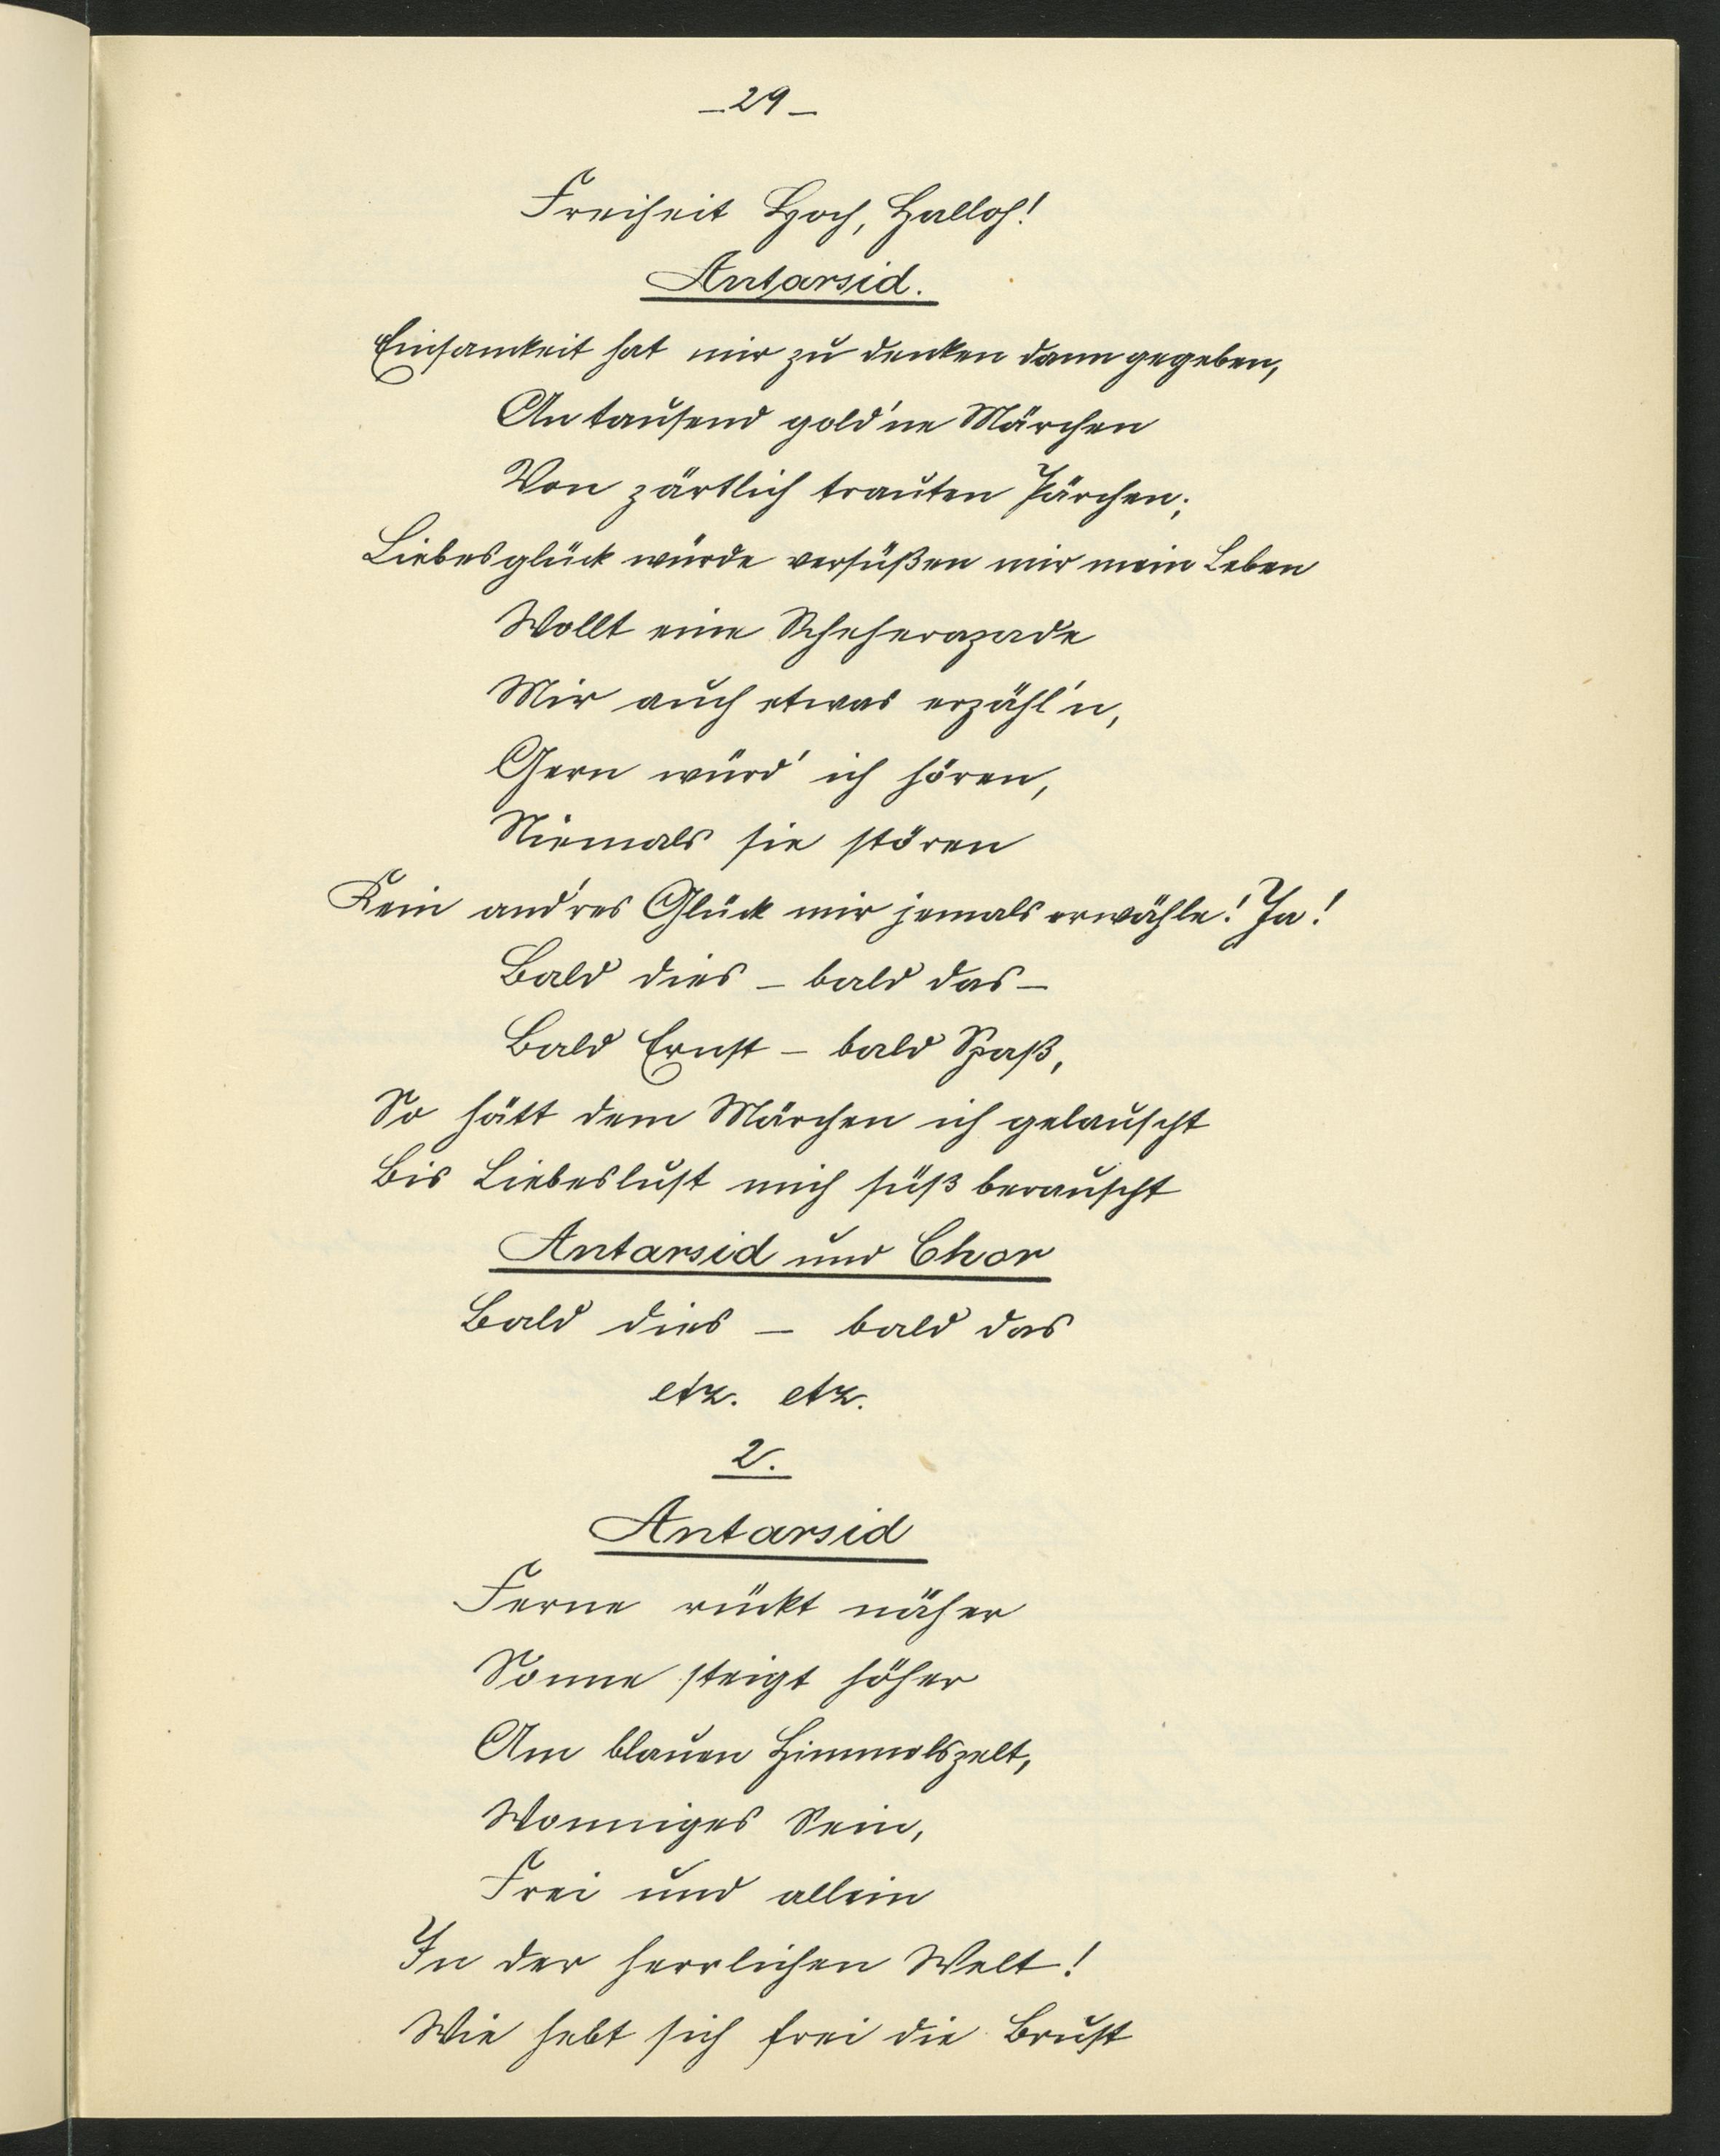 – 29 –
Freiheit Hoch, Halloh!
Antarsid.
Einsamkeit hat mir zu denken dann gegeben,
An tausend gold'ne Märchen
Von zärtlich trauten Pärchen;
Liebesglück würde versüßen mir mein Leben
Wollt eine Scheherazade
Mir auch etwas erzähl'n,
Gern würd' ich hören,
Niemals sie stören
Kein and'res Glück mir jemals erwähle! Ja!
Bald dies – bald das –
Bald Ernst – bald Spaß,
So hätt dem Märchen ich gelauscht
Bis Liebeslust mich süß berauscht
Antarsid und Chor
Bald dies – bald das
etz. etz.
2.
Antarsid
Ferne rückt näher
Sonne steigt höher
Am blauen Himmelszelt,
Wonniges Sein,
Frei und allein
In der herrlichen Welt!
Wie hebt sich frei die Brust